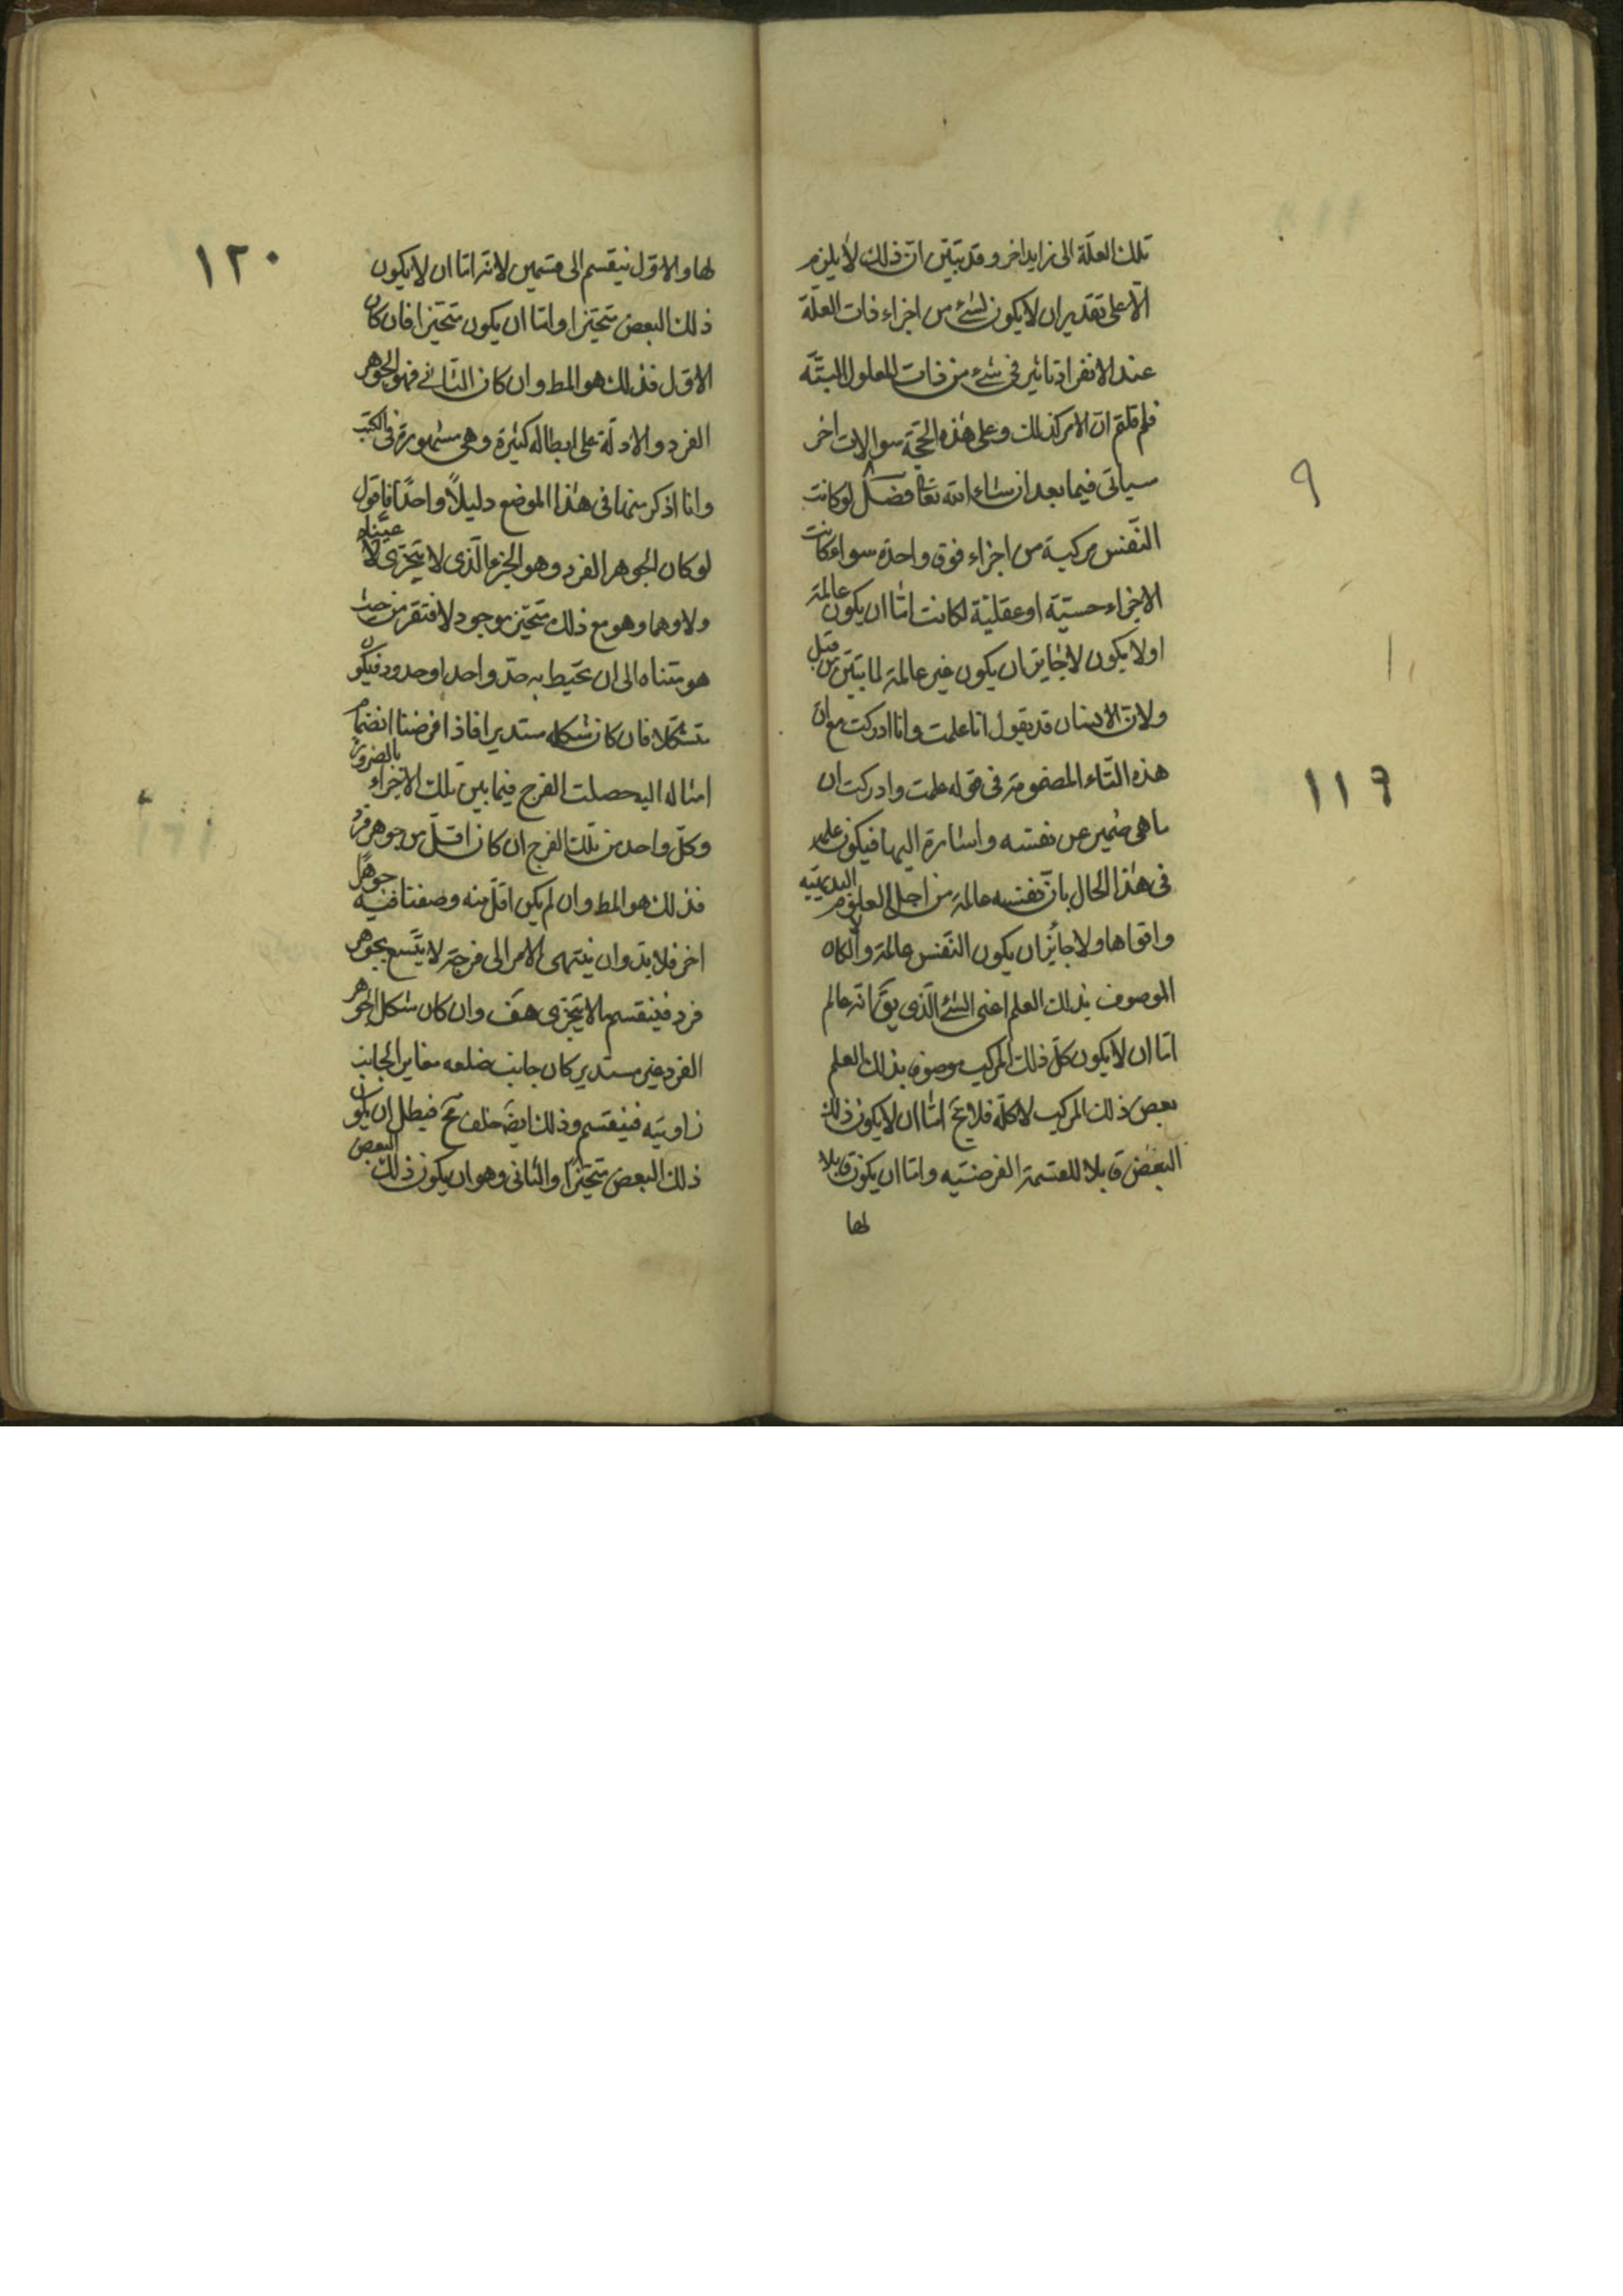 تلك العلّة الى زايد اخر و قد تبيّن انّ ذلك لا يلزم
الّا على تقدير ان لا يكون لشئ من اجزاء ذات العلّة
عند الانفراد تاثير فى شئ من ذات المعلول البتّة
فلم قلتم انّ الامر كذلك وعلى هذه الحجّة سوالات اخر
سياتى فيما بعد ان شاء الله تعا فصل لو كانت
النّفس مركبة من اجزاء فوق واحدة سواء كانت
الاجزاء حسيّة او عقليّة لكانت امّا ان يكون عالمة
او لا يكون لا جايز ان يكون غير عالمة لما تبيّن من قبل
ولانّ الانسان قد يقول انا علمت وانا ادركت مع انّ
هذه التّاء المضمومة فى قوله علمت وادركت ان
ما هى ضمير عن نفسه واشارة اليها فيكون علمه
فى هذا الحال بانّ نفسه عالمة من اجلى العلوم البديهيّه
واقواها ولا جائز ان يكون النّفس عالمة والّا لكان
الموصوف بذلك العلم اعنى الشئ الّذى يق انّه عالم
امّا ان لا يكون كلّ ذلك المركب موصوف بذلك العلم
بعض ذلك المركب لا كلّه فلا يخ امّا ان لا يكون ذلك
البعض قابلا للقسمة الفرضيّه وامّا ان يكون قابلا
لها
٩
١
١١٩
١٢٠
لها والاوّل ينقسم الى قسمين لانّه امّا ان لا يكون
ذلك البعض متحيّزا وامّا ان يكون متحيّزا فان كان
الاوّل فذلك هو المط وان كان الثانے فهو الجوهر
الفرد والادلّة على ابطاله كثيرة وهى مشهورة فى الكتب
وانا اذكر منها فى هذا الموضع دليلاً واحدًا فاقول
لو كان الجوهر الفرد وهو الجزء الّذى لا يتجزى لا عينا
ولا وهما وهو مع ذلك متحيّز موجود لافتقر من حيث
هو متناه الى ان يحيط به حدّ واحد او حدود فيكون
متشكّلا فان كان شكله مستديرا فاذا فرضنا انضمام
امثاله اليه حصلت الفرج فيما بين تلك الاجزاء بالضرورة
وكلّ واحد من تلك الفرج ان كان اقلّ من جوهر فرد
فذلك هو المط وان لم يكن اقلّ منه وضعنا فيه جوهرًا
اخر فلا بدّ وان ينتهى الامر الى فرجة لا يتّسع بجوهر
فرد فينقسم ما لا يتجزى هف وان كان شكل الجوهر
الفرد غير مستدير كان جانب ضلعه مغاير الجانب
زاويته فينقسم وذلك ايضً خلف مح فبطل ان يكون
ذلك البعض متحيّزًا والثانى وهو ان يكون ذلك البعض